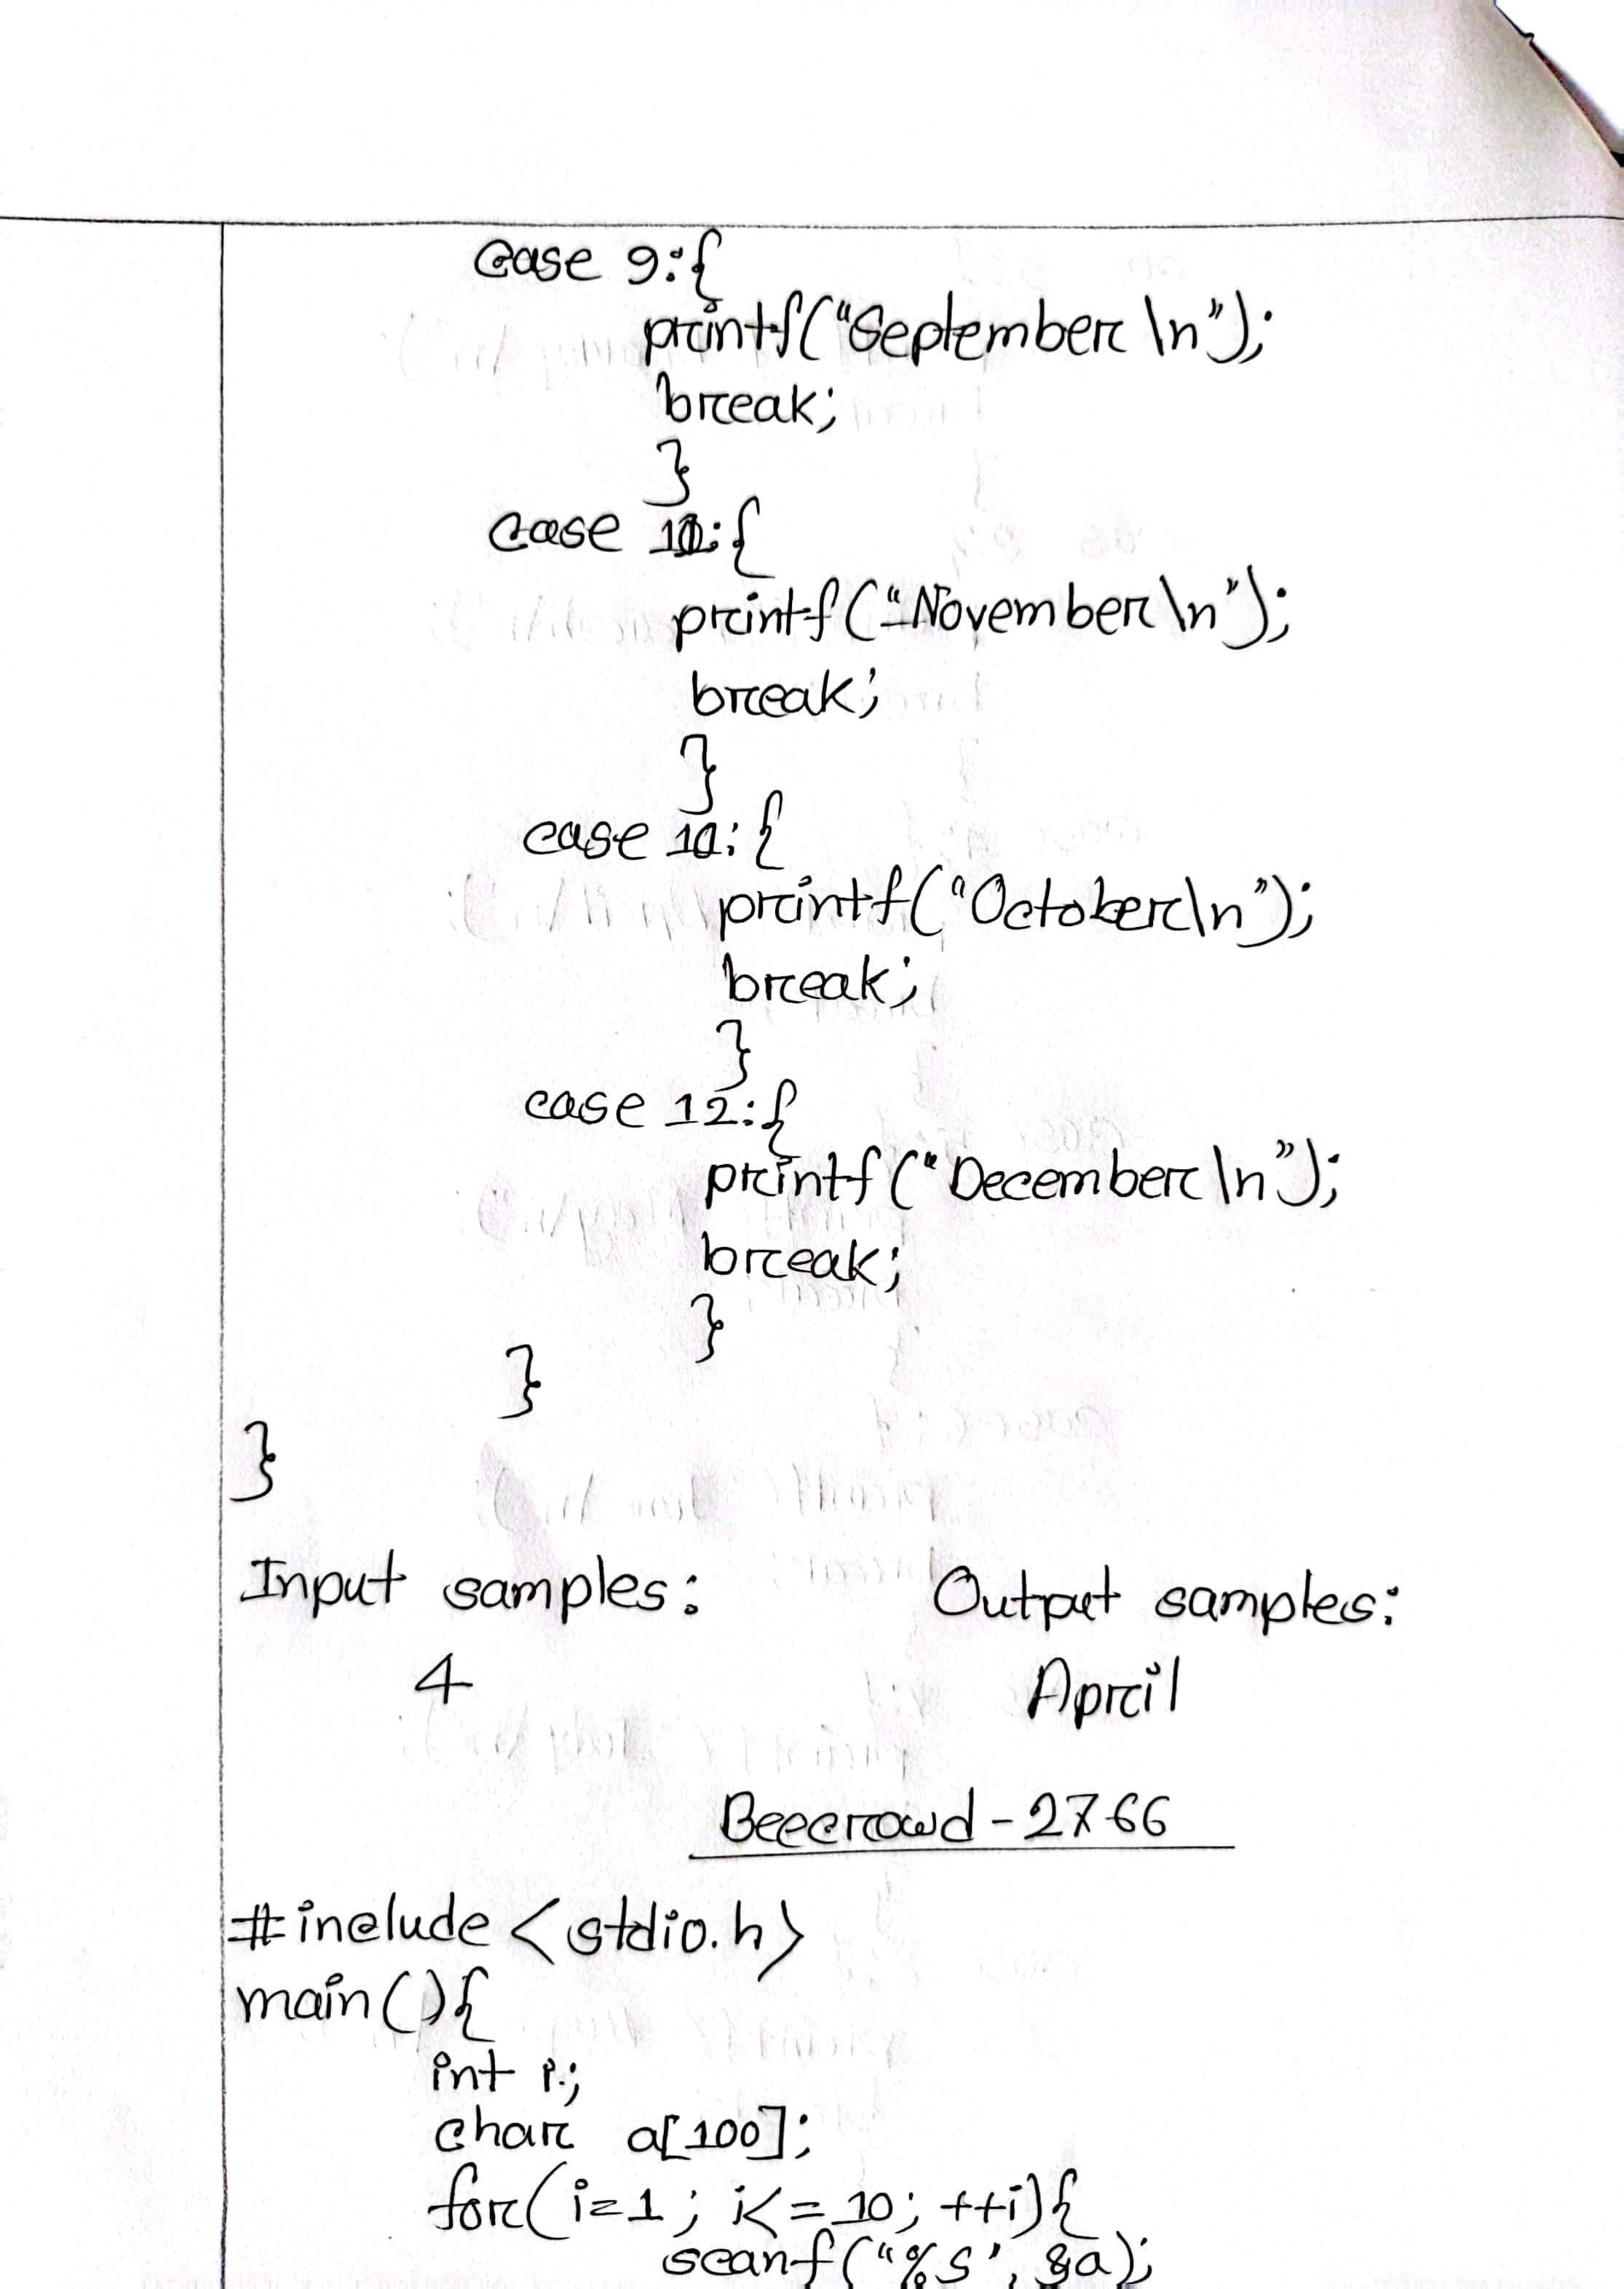 case 9:{
printf("September \n");
break;
}
case 11:{
printf("November \n");
break;
}
case 10:{
printf("October\n");
break;
}
case 12:{
printf("December \n");
break;
}
}
}
Input samples: Output samples:
4 April
Beecrowd - 2766
#include <stdio.h>
main(){
int i;
char a[100];
for(i=1; i<=10; ++i){
scanf("%s", &a);